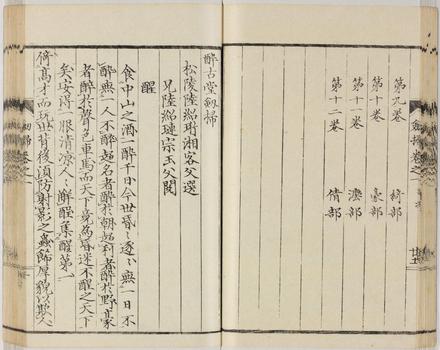 第九巻 綺部
第十巻 豪部
第十一巻 灋部
第十二巻 倩部
醉古堂劔掃
松陵陸紹珩湘客父選
兄陸紹璉宗玉父閲
醒
食中山之酒一醉千日今世昏〻逐〻無一日不
醉無一人不醉趨名者醉於朝趨利者醉於野豪
者醉於聲色車馬而天下竟為昏迷不醒之天下
矣安得一服清凉人〻解酲集醒第一
倚高才而玩世背後須防射影之蟲飾厚貌以欺人
劔掃巻之一